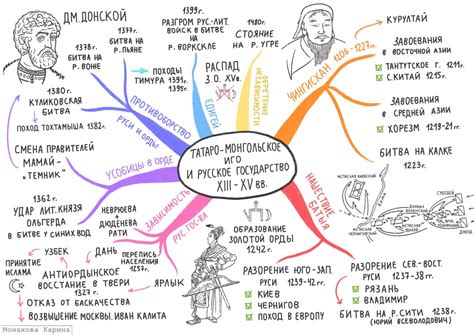 ДМ. ДОНСКОЙ
1377г.
БИТВА НА
Р. ПЬЯНЕ
1378г.
БИТВА НА
Р. ВОЖЕ
1380г.
КУЛИКОВСКАЯ
БИТВА
ПОХОД ТОХТАМЫША 1382г.
ПРОТИВОБОРСТВО
РУСИ И ОРДЫ
1399г.
РАЗГРОМ РУС.-ЛИТ.
ВОЙСК В БИТВЕ
НА ВОРКСКЛЕ
ПОХОДЫ
ТИМУРА 1391г.
1395г.
ЕДИГЕЙ
1480г.
СТОЯНИЕ
НА Р. УГРЕ
РАСПАД
З.О. XVв.
ОБРЕТЕНИЕ
НЕЗАВИСИМОСТИ
ЧИНГИСХАН
1206-1227гг.
КУРУЛТАЙ
ЗАВОЕВАНИЯ
В ВОСТОЧНОЙ АЗИИ
ТАНГУТСКОЕ Г. 1211г.
С.КИТАЙ 1215г.
ЗАВОЕВАНИЯ
В СРЕДНЕЙ АЗИИ
ХОРЕЗМ 1219-21гг.
БИТВА НА КАЛКЕ
1223г.
ТАТАРО-МОНГОЛЬСКОЕ
ИГО
И РУССКОЕ ГОСУДАРСТВО
XIII-XV ВВ.
СМЕНА ПРАВИТЕЛЕЙ
МАМАЙ-
"ТЕМНИК"
УСОБИЦЫ В ОРДЕ
1362г.
УДАР ЛИТ.КНЯЗЯ
ОЛЬГЕРДА
В БИТВЕ У СИНИХ ВОД
ЗАВИСИМОСТЬ
РУС.ГОС-ВА
НЕВРЮЕВА
И
ДЮДЕНЕВА
РАТИ
ДАНЬ
ПЕРЕПИСЬ
НАСЕЛЕНИЯ
1257г.
ЯРЛЫК
УЗБЕК
ПРИНЯТИЕ
ИСЛАМА
АНТИОРДЫНСКОЕ
ВОССТАНИЕ В ТВЕРИ
1327г.
ОТКАЗ ОТ БАСКАЧЕСТВА
ВОЗВЫШЕНИЕ МОСКВЫ, ИВАН КАЛИТА
НАШЕСТВИЕ
БАТЫЯ
ОБРАЗОВАНИЕ
ЗОЛОТОЙ ОРДЫ
1242г.
РАЗОРЕНИЕ ЮГО-ЗАП.
РУСИ 1239-41гг.
КИЕВ
ЧЕРНИГОВ
ПОХОД В ЕВРОПУ
РАЗОРЕНИЕ СЕВ.-ВОСТ.
РУСИ 1237-38гг.
РЯЗАНЬ
ВЛАДИМИР
БИТВА НА Р.СИТИ 1238г.
(ЮРИЙ ВСЕВОЛОДОВИЧ)
Монахова Карина